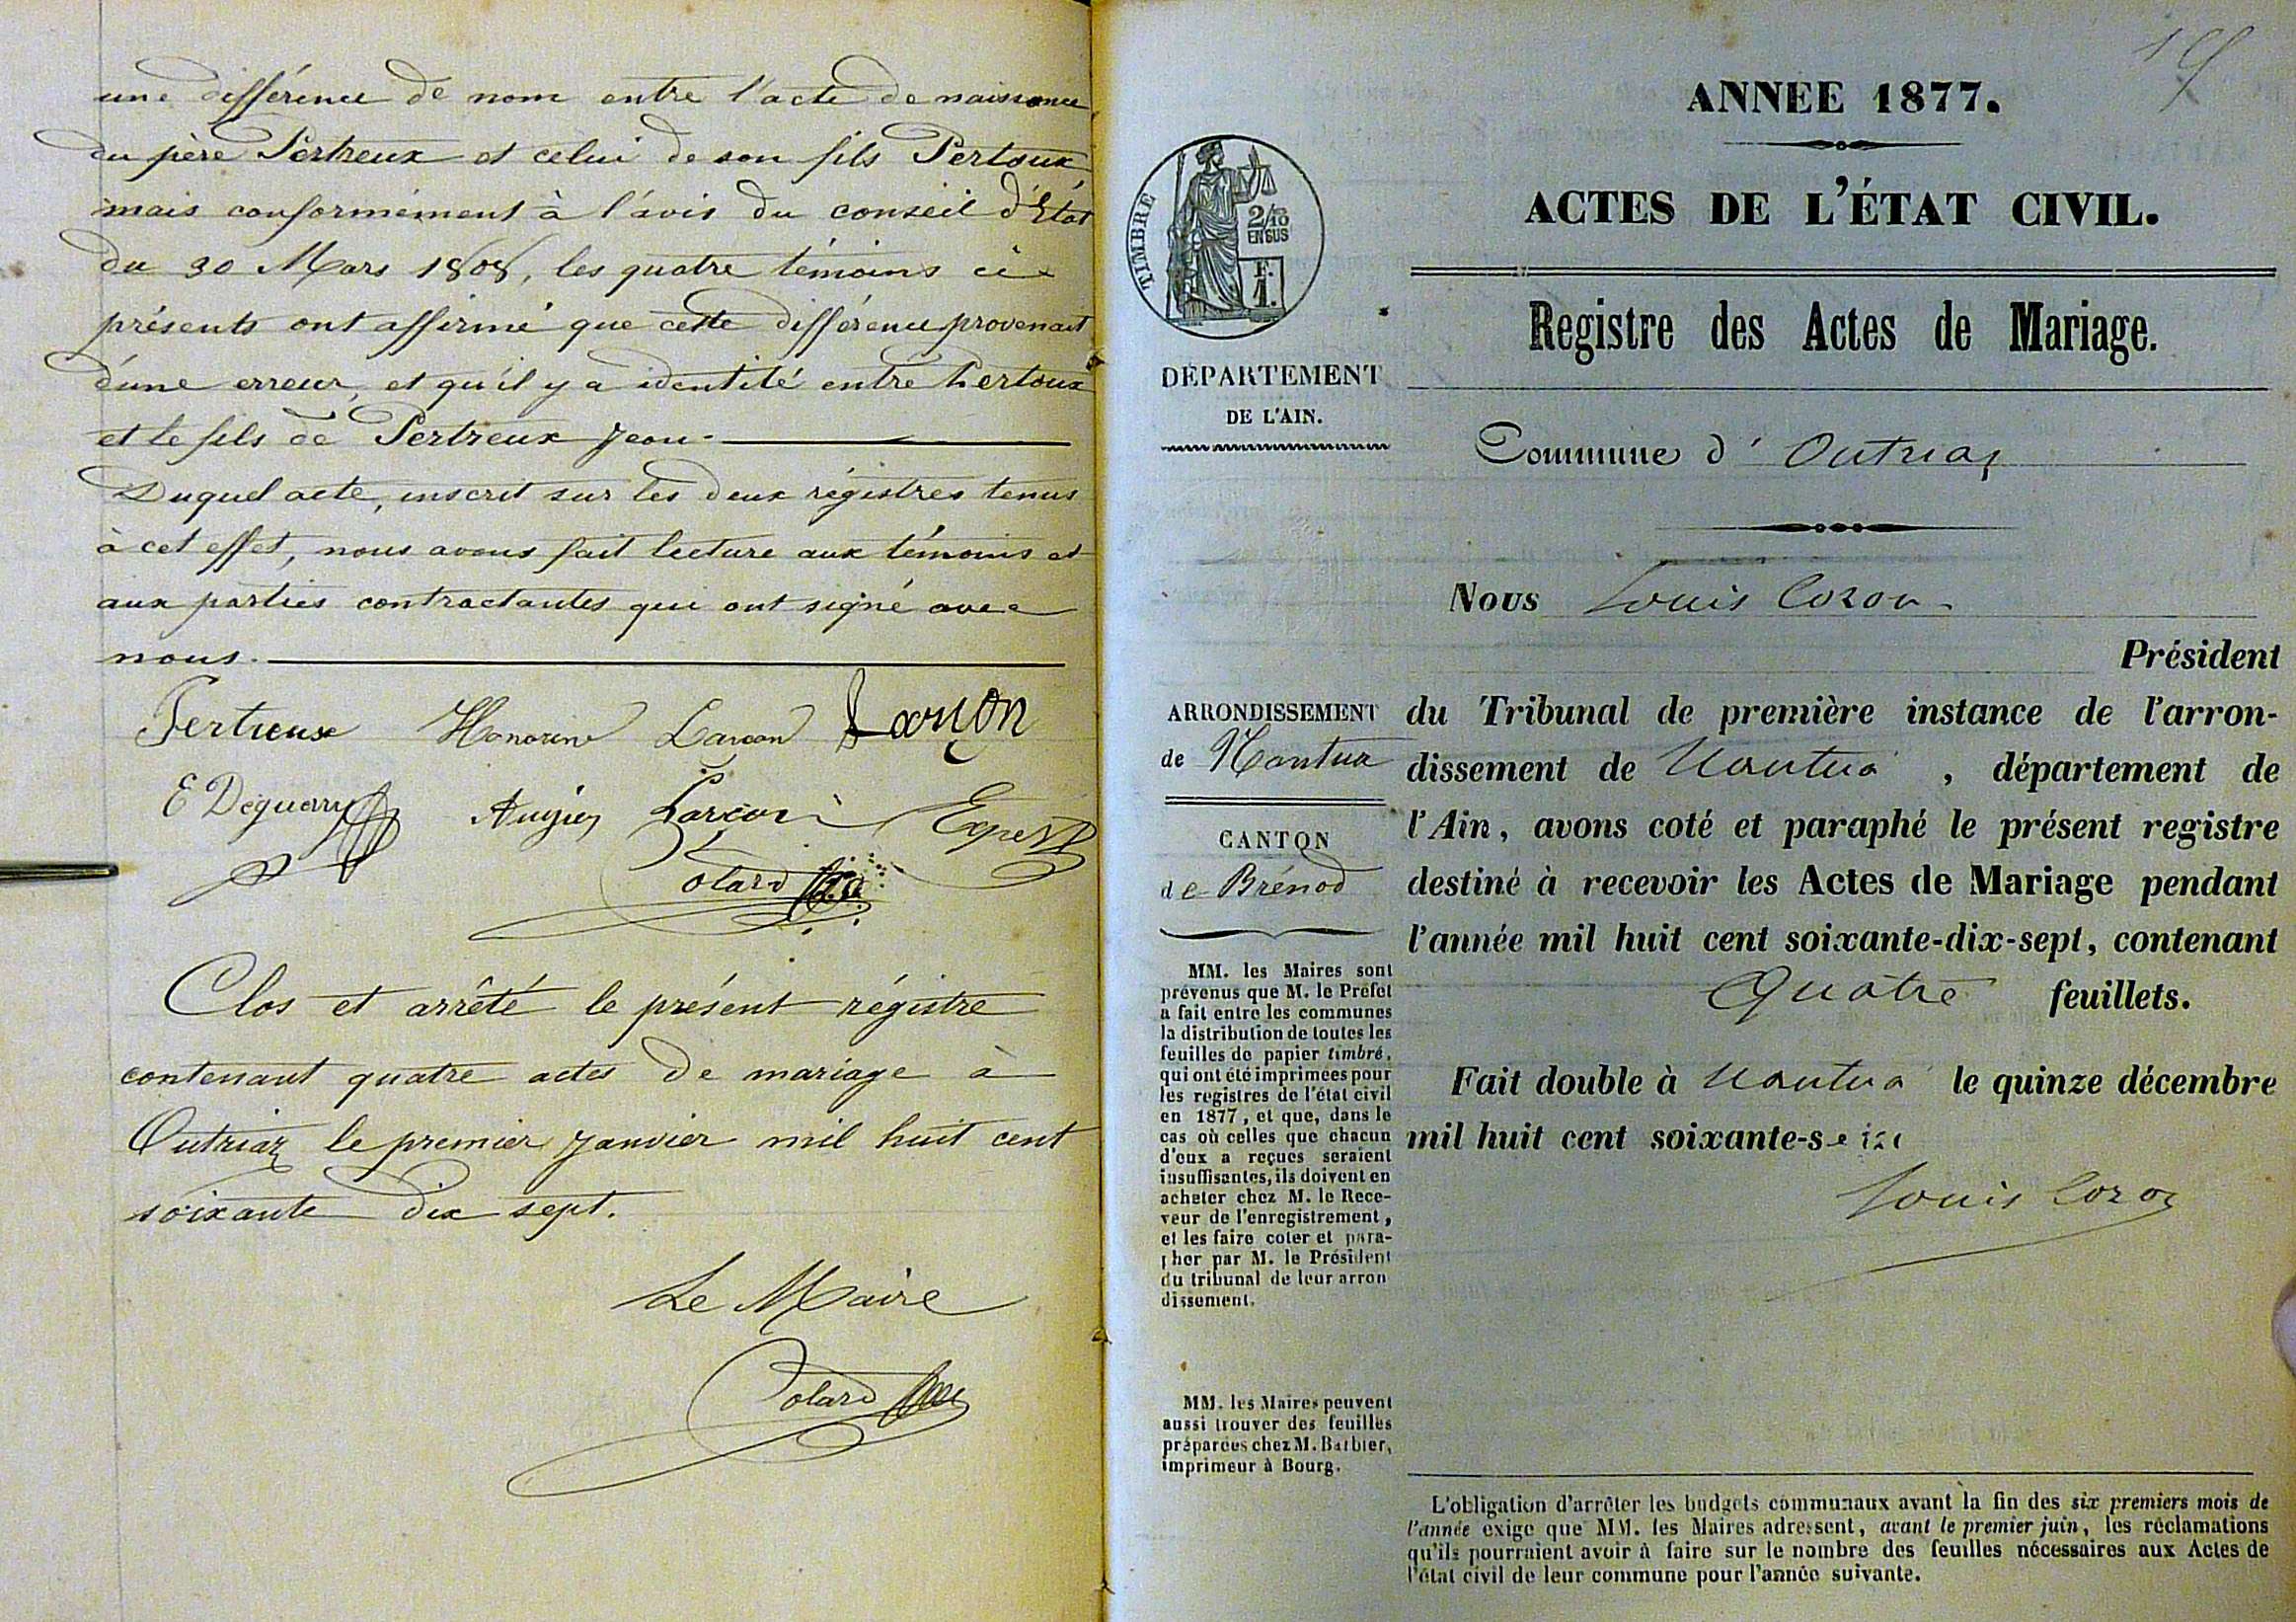 une différence de nom entre l'acte de naissance
du père Pertreux et celui de son fils Pertoux
mais conformément à l'avis du conseil d'Etat
du 30 Mars 1808, les quatre témoins ci-
présents ont affirmé que cette différence provenait
d'une erreur, et qu'il y a identité entre Pertoux
et le fils de Pertreux Jean.
Duquel acte, inscrit sur les deux régistres tenus
à cet effet, nous avons fait lecture aux témoins et
aux parties contractantes qui ont signé avec
nous.
Pertreux Honorine Larçon Larçon
E Deguerry Larçon Expert
Colard
Clos et arrêté le présent régistre
contenant quatre actes de mariage à
Outriaz le premier janvier mil huit cent
soixante dix sept.
Le Maire
Colard
19
ANNEE 1877.
ACTES DE L'ÉTAT CIVIL.
TIMBRE
2/10
EN SUS
F.
1.
Registre des Actes de Mariage.
DÉPARTEMENT
DE L'AIN.
Commune d' Outriaz
Nous Louis Cozon
Président
ARRONDISSEMENT
de Nantua
CANTON
de Brénod
du Tribunal de première instance de l'arron-
dissement de Nantua , département de
l'Ain, avons coté et paraphé le présent registre
destiné à recevoir les Actes de Mariage pendant
l'année mil huit cent soixante-dix-sept, contenant
Quatre feuillets.
Fait double à Nantua le quinze décembre
mil huit cent soixante-seize
Louis Cozon
MM. les Maires sont
prévenus que M. le Préfet
a fait entre les communes
la distribution de toutes les
feuilles de papier timbré,
qui ont été imprimées pour
les registres de l'état civil
en 1877, et que, dans le
cas où celles que chacun
d'eux a reçues seraient
insuffisantes, ils doivent en
acheter chez M. le Rece-
veur de l'enregistrement,
et les faire coter et para-
pher par M. le Président
du tribunal de leur arron
dissement.
MM. les Maires peuvent
aussi trouver des feuilles
préparées chez M. Barbier,
imprimeur à Bourg.
L'obligation d'arrêter les budgets communaux avant la fin des six premiers mois de
l'année exige que MM. les Maires adressent, avant le premier juin, les réclamations
qu'ils pourraient avoir à faire sur le nombre des feuilles nécessaires aux Actes de
l'état civil de leur commune pour l'année suivante.